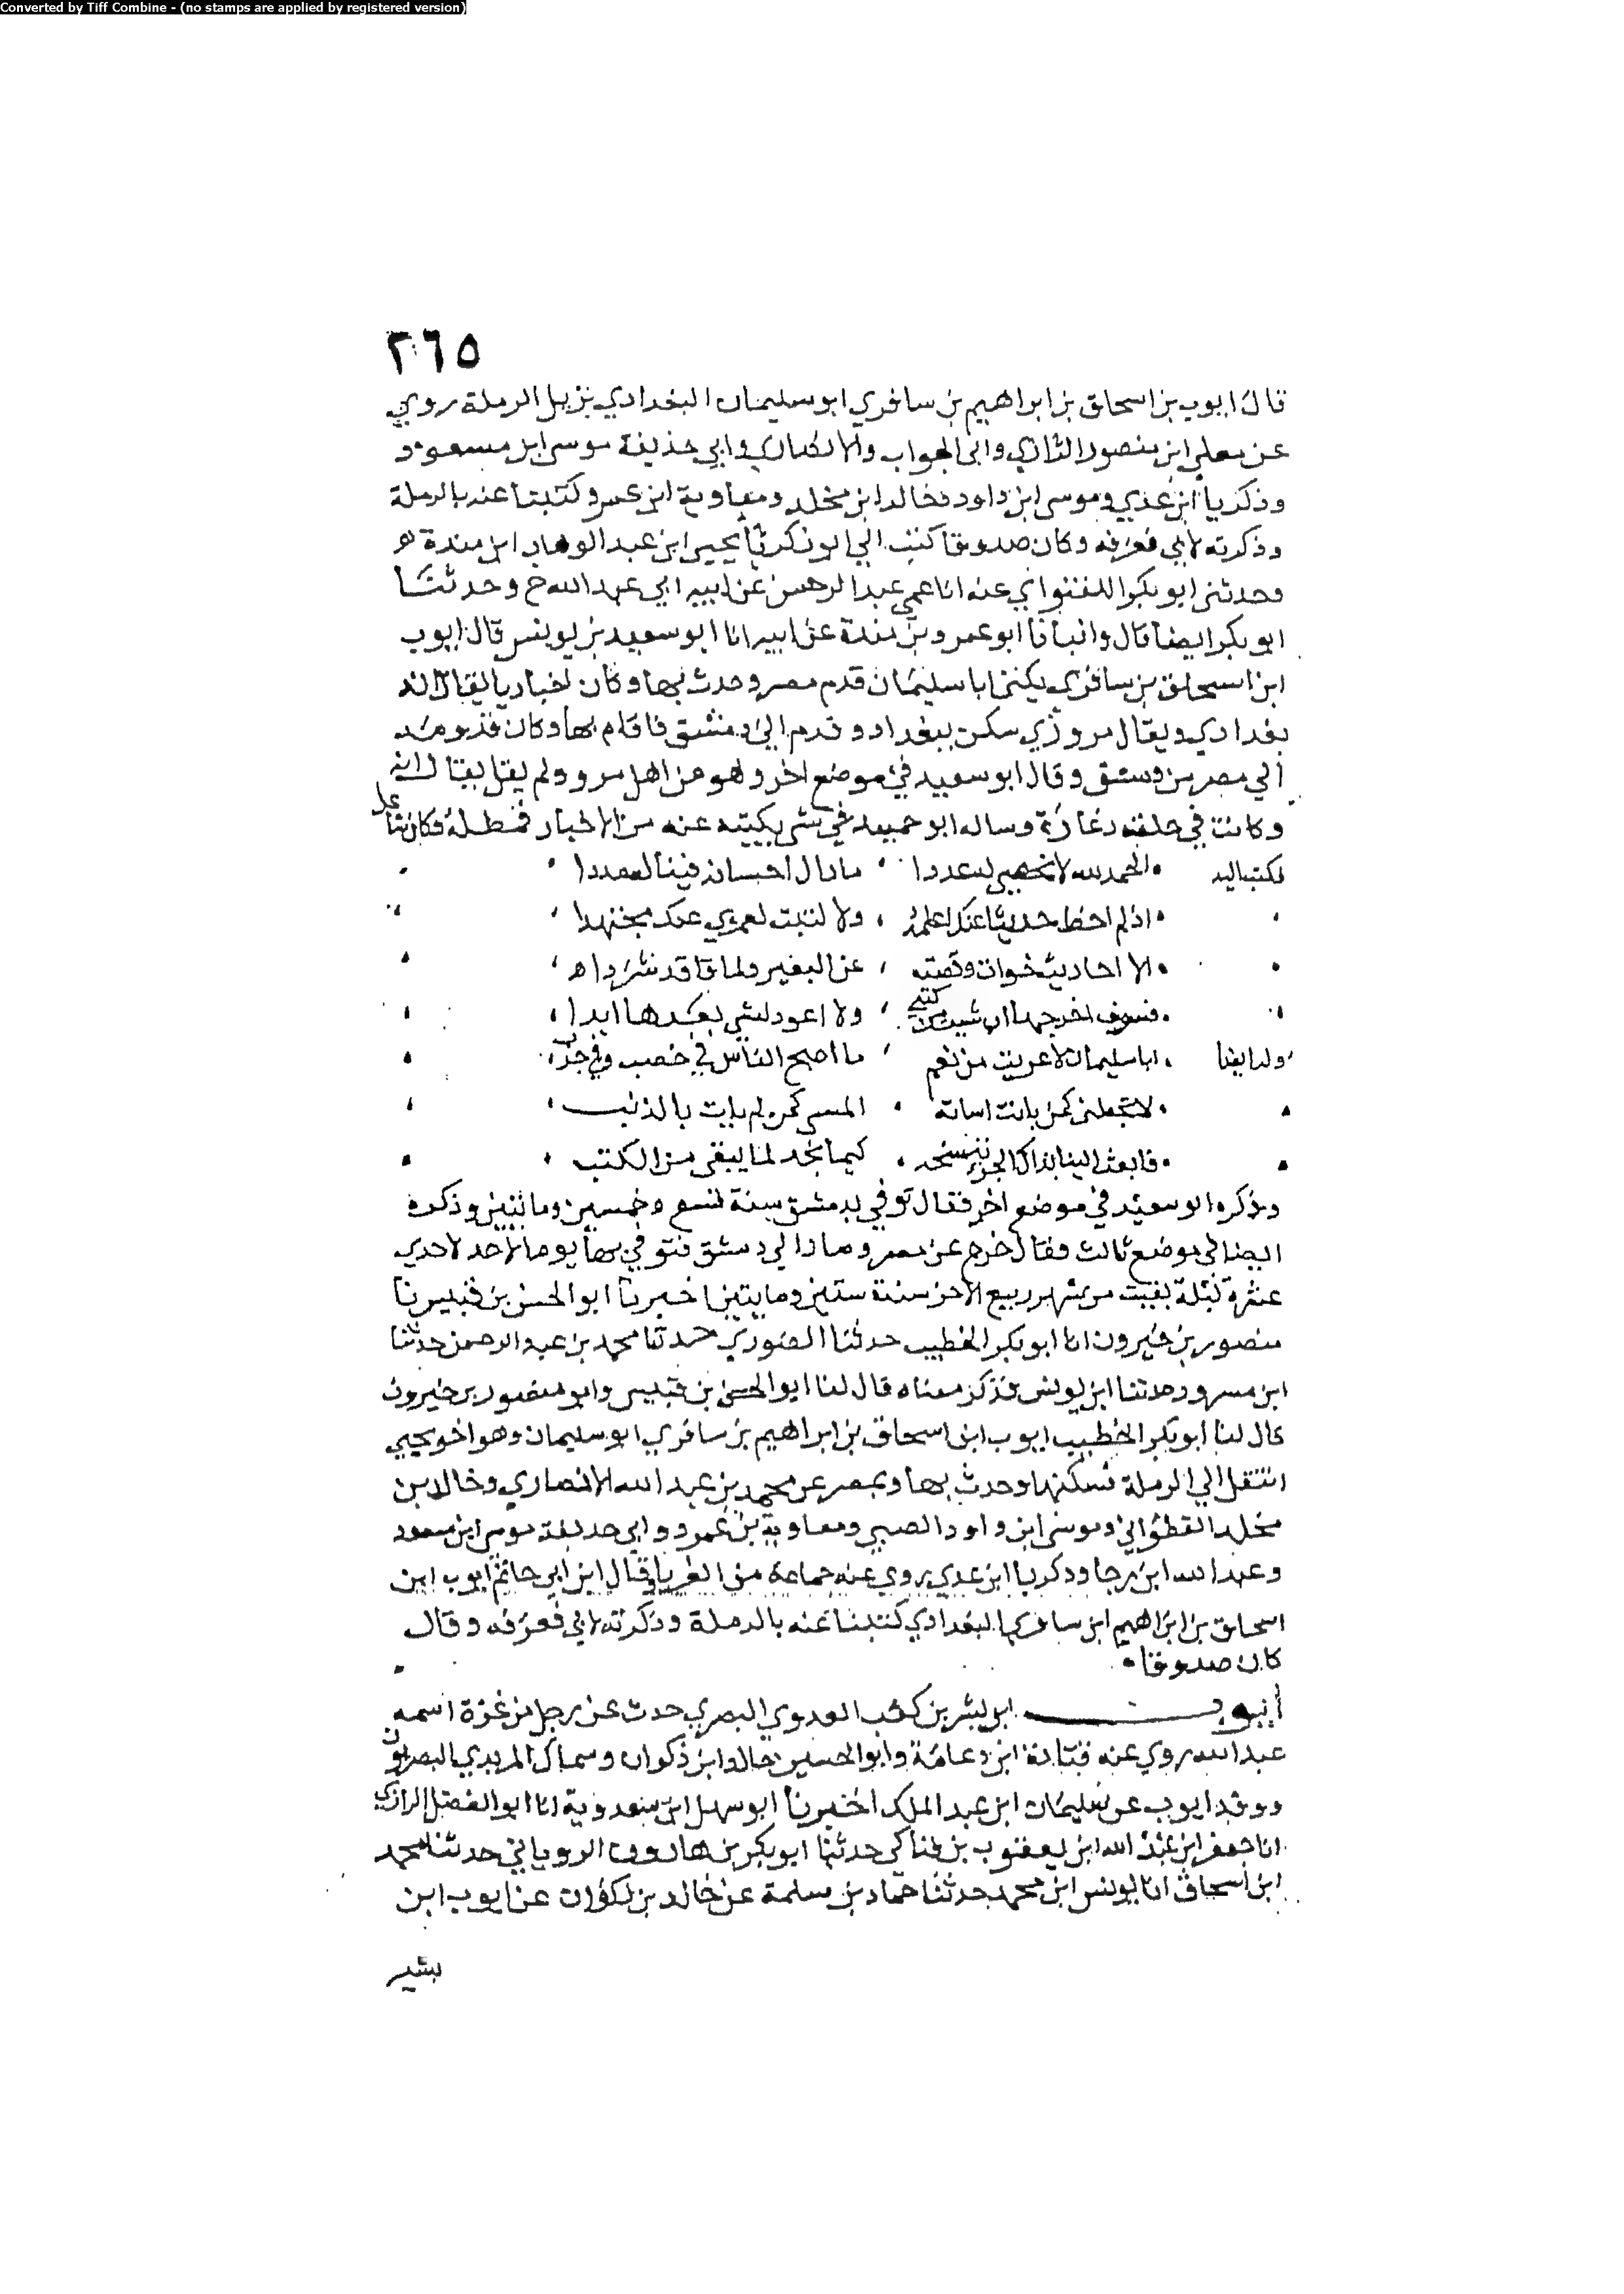 Converted by Tiff Combine - (no stamps are applied by registered version)
٢٦٥
قال ايوب بن اسحاق بن ابراهيم بن سافري ابو سليمان البغدادي نزيل الرملة روي
عن معلي ابن منصور الرازي وابي الجواب والانصاري وابي حذيفة موسى ابن مسعود
وذكريا ابن عدي وموسى ابن داود وخالد ابن مخلد ومعاوية ابن عمرو كتبنا عنه بالرملة
وذكرته لابي فعرفه وكان صدوقا كتب الي ابو زكريا يحيى ابن عبد الوهاب ابن مندة
وحدثني ابو بكر اللفتواني عنه انا عمي عبد الرحمن عن ابيه ابي عبد الله ح وحدثنا
ابو بكر ايضا قال وانبانا ابو عمرو بن مندة عن ابيه انا ابو سعيد بن يونس قال ايوب
ابن اسحاق بن سافري يكنى ابا سليمان قدم مصر وحدث بها وكان اخباريا يقال انه
بغدادي ويقال مروزي سكن ببغداد وقدم الي دمشق فاقام بها وكان قدومه
الي مصر من دمشق وقال ابو سعيد في موضع اخر وهو من اهل مرو ولم يقل يقال انه
وكانت في خلقه زعارة وساله ابو حميد في شي يكتبه عنه من الاخبار فمطله وكان شاعرا
فكتب اليه الحمد لله لا نحصي له عددا ما زال احسانه فينا له مددا
اذ لم احط حديثا عنك اعلمه ولا كتبت لعمري عنك مجتهدا
الا احاديث خوات وقصته عن البعير ولما قال قد شردا
فسوف اخرجها ان شيت من كتبي ولا اعود لشي بعدها ابدا
وله ايضا ابا سليمان لا عريت من نعم ما اصبح الناس في خصب وفي جدب
لا تجعلني كمن بانت اساته المسي كمن لم يات بالذنب
فابعث الينا بذاك الجزء ننسخه كيما نجد لما يبقى من الكتب
وذكره ابو سعيد في موضع اخر فقال توفي بدمشق سنة تسع وخمسين ومائتين وذكره
ايضا في موضع ثالث فقال خرج عن مصر الي دمشق فتوفي بها يوم الاحد لاحدي
عشرة ليلة بقيت من شهر ربيع الاخر سنة ستين ومايتين اخبرنا ابو الحسن بن قبيس نا
منصور بن خيرون انا ابو بكر الخطيب حدثنا الصوري حدثنا محمد بن عبد الرحمن حدثنا
ابن مسرور حدثنا ابن يونس فذكر معناه قال لنا ابو الحسن بن قبيس وابو منصور بن خيرون
قال لنا ابو بكر الخطيب ايوب ابن اسحاق بن ابراهيم بن سافري ابو سليمان وهو اخو يحيي
انتقل الي الرملة فسكنها وحدث بها وبمصر عن محمد بن عبد الله الانصاري وخالد بن
مخلد القطواني وموسى ابن داود الضبي ومعاوية بن عمرو وابي حذيفة موسى ابن مسعود
وعبد الله ابن رجا وذكريا ابن عدي روي عنه جماعة من الغربا وقال ابن ابي حاتم ايوب ابن
اسحاق بن ابراهيم ابن سافري البغدادي كتبنا عنه بالرملة وذكرته لابي فعرفه وقال
كان صدوقا
أيوب ابن بشير بن كعب العدوي البصري حدث عن رجل من غزة اسمه
عبد الله روي عنه قتادة ابن دعامة وابو الحسين خالد ابن ذكوان وسماك المربدي البصريون
ووفد ايوب عن سليمان ابن عبد الملك اخبرنا ابو سهل ابن سعدوية انا ابو الفضل الرازي
انا جعفر ابن عبد الله ابن يعقوب بن فناكي حدثنا ابو بكر بن هارون الروياني حدثنا محمد
ابن اسحاق انا يونس ابن محمد حدثنا حماد بن سلمة عن خالد بن ذكوان عن ايوب ابن
بشير